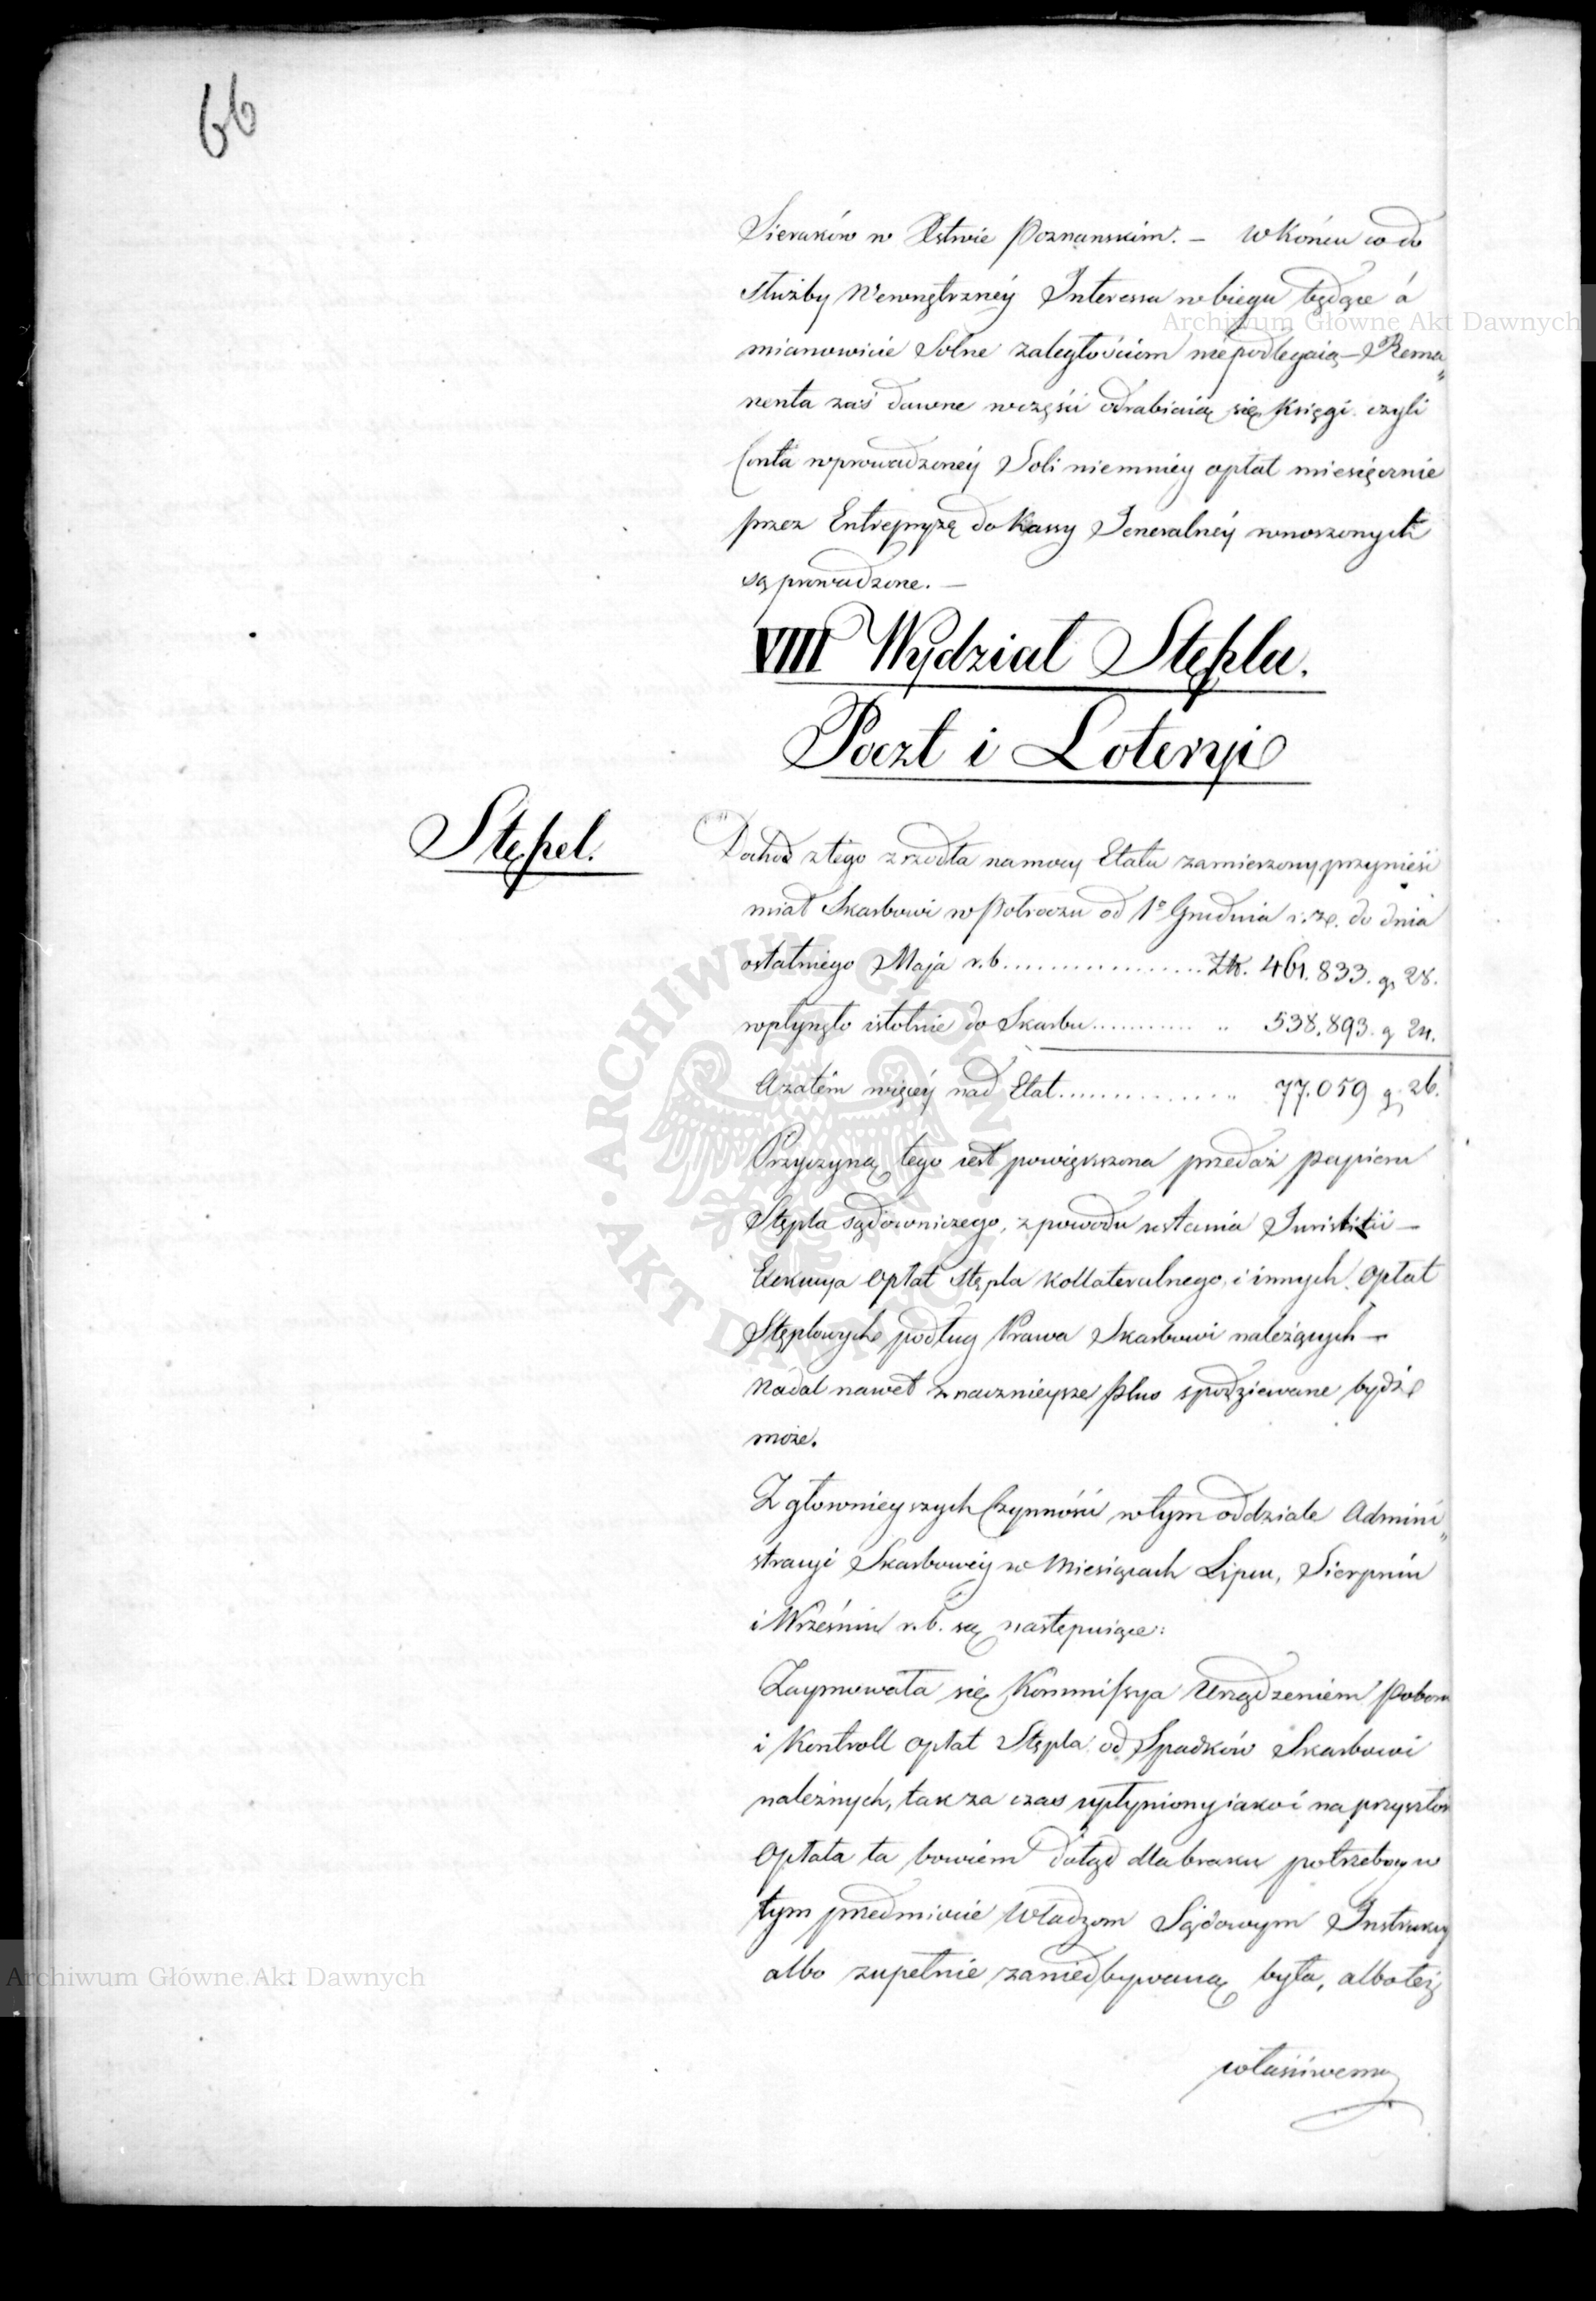 66
Sieraków w Xstwie Poznanskim. — W Końcu co do
służby Wewnętrznéy Interessa w biegu będące á
mianowicie Solne zaległościom nie podlegaią — Rema„
nenta zaś dawne w części odrabiaią się, Księgi czyli
Conta wprowadzonéy Soli niemniéy opłat miesięcznie
przez Entrepryzę do Kassy Jeneralnéy wnoszonych
są prowadzone. —
VIII Wydział Stępla.
Poczt i Loteryi
Stępel.
Dochod z tego zrzodła na mocy Etatu zamierzony przynieść
miał Skarbowi w Połroczu od 1º Grudnia r. z. do dnia
ostatniego Maja r. b. .................. Zł. 461.833. g. 28.
wpłynęło istotnie do Skarbu ............ „ 538.893. g 24.
A zatém więcéy nad Etat ................ „ 77.059 g. 26.
Przyczyną tego iest powiększona przedaż papieru
Stępla sądowniczego, z powodu ustania Juristitii —
Exekucya Opłat Stępla kollateralnego, i innych Opłat
Stęplowych podług Prawa Skarbowi należących —
Nadal nawet znacznieysze plus spodziewane bydź
może.
Z głownieyszych Czynności w tym oddziale Admini„
stracyi Skarbowéy w Miesiącach Lipcu, Sierpniu
i Wrześniu r. b. są następuiące:
Zaymowała się Kommissya Urządzeniem Poboru
i Kontroll Opłat Stępla od Spadków Skarbowi
należnych, tak za czas upłyniony iako i na przyszłość
Opłata ta bowiem dotąd dla braku potrzebney w
tym przedmiocie Władzom Sądowym Instrukcyi
albo zupełnie zaniedbywaną była, albo też
właściwemu
Archiwum Główne Akt Dawnych
Archiwum Główne Akt Dawnych
ARCHIWUM GŁÓWNE AKT DAWNYCH